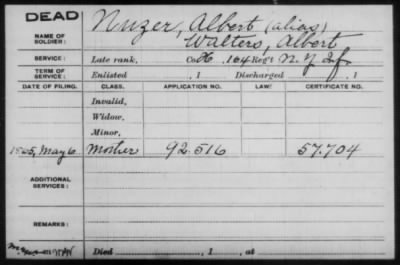 DEAD
Nuzer, Albert (alias)
NAME OF SOLDIER: Walters, Albert
SERVICE: Late rank, Co H, 164 Reg't N.Y. Inf
TERM OF SERVICE: Enlisted , 1 Discharged , 1
DATE OF FILING. CLASS. APPLICATION NO. LAW. CERTIFICATE NO.
Invalid,
Widow,
Minor,
1865, May 6. Mother 92.516 57.704
ADDITIONAL SERVICES:
REMARKS:
Died , 1 , at